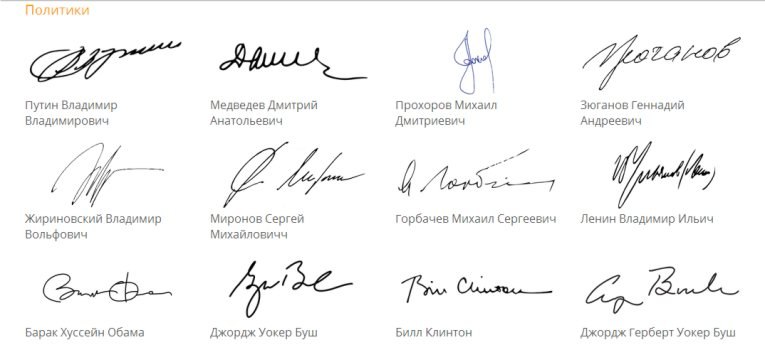 Политики
Путин Владимир
Владимирович
Медведев Дмитрий
Анатольевич
Прохоров Михаил
Дмитриевич
Зюганов Геннадий
Андреевич
Жириновский Владимир
Вольфович
Миронов Сергей
Михайловичч
Горбачев Михаил Сергеевич
Ленин Владимир Ильич
Bill Clinton
Барак Хуссейн Обама
Джордж Уокер Буш
Билл Клинтон
Джордж Герберт Уокер Буш